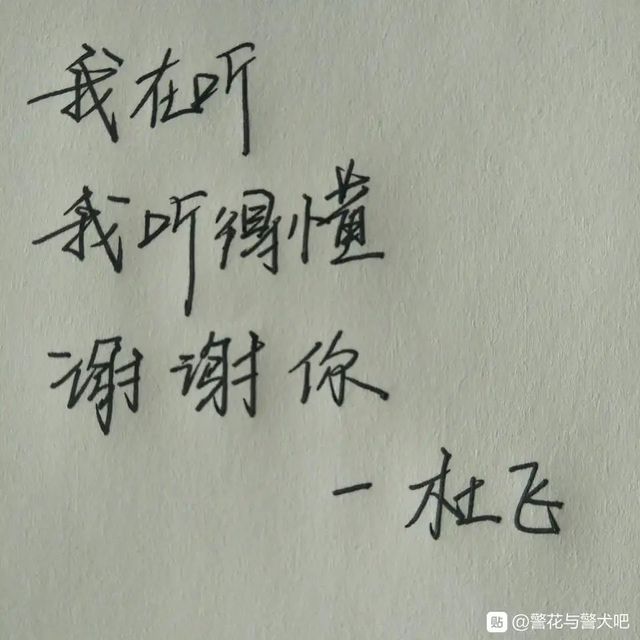 我在听
我听得懂
谢谢你
－杜飞
贴 @警花与警犬吧